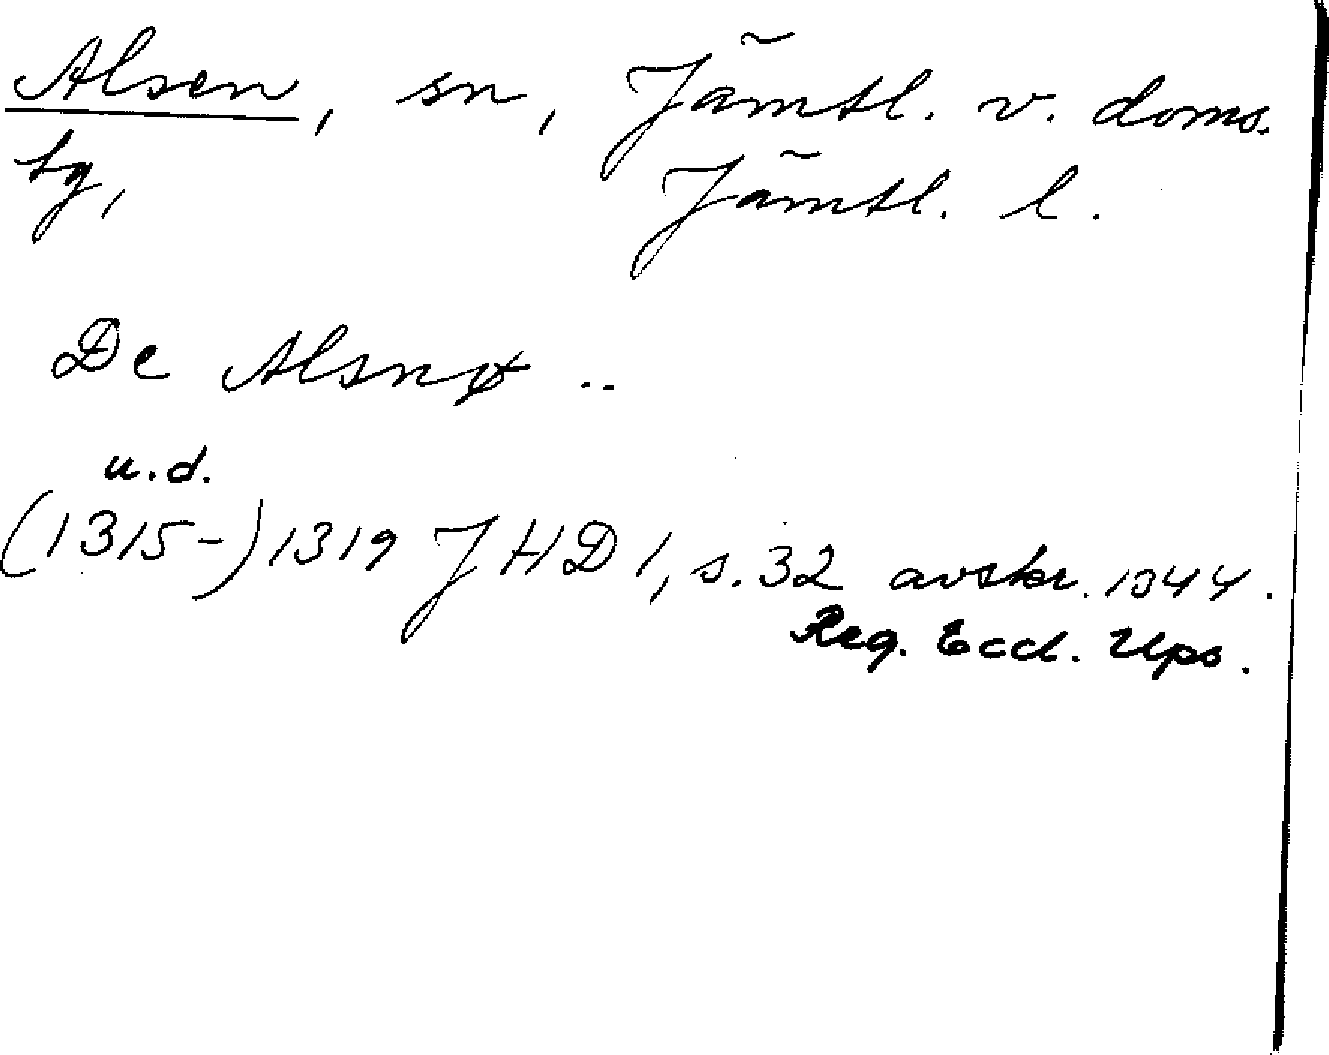 Alsen, sn, Jämtl. v. doms.
tg, Jämtl. l.
De Alsnø ..
u.d.
(1315-) 1319 JHD 1, s. 32 avskr. 1344.
Reg. Eccl. Ups.